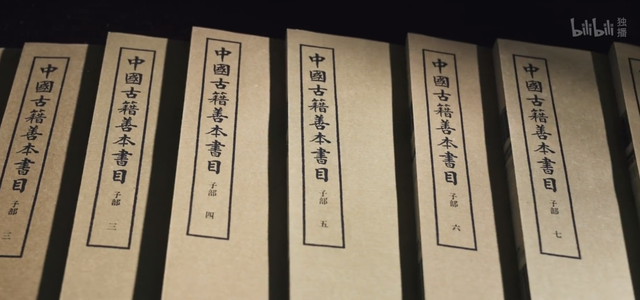 bilibili 独播
中國古籍善本書目 子部
中國古籍善本書目 子部 三
中國古籍善本書目 子部 四
中國古籍善本書目 子部 五
中國古籍善本書目 子部 六
中國古籍善本書目 子部 七